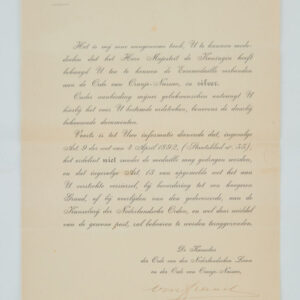 Het is mij eene aangename taak, U te kunnen mede-
deelen dat het Hare Majesteit de Koningin heeft
behaagd U toe te kennen de Eeremedaille verbonden
aan de Orde van Oranje-Nassau, in zilver.
Onder aanbieding mijner gelukwenschen ontvangt U
hierbij het voor U bestemde eereteeken, benevens de daarbij
behoorende documenten.
Voorts is tot Uwe informatie dienende dat, ingevolge
Art. 9 der wet van 4 April 1892, (Staatsblad nº. 55),
het eerelint niet zonder de medaille mag gedragen worden,
en dat ingevolge Art. 13 van opgemelde wet het aan
U verstrekte versiersel, bij bevordering tot een hoogeren
Graad, of bij overlijden van den gedecoreerde, aan de
Kanselarij der Nederlandsche Orden, en wel door middel
van de gewone post, zal behooren te worden teruggezonden.
De Kanselier
der Orde van den Nederlandschen Leeuw
en der Orde van Oranje-Nassau,